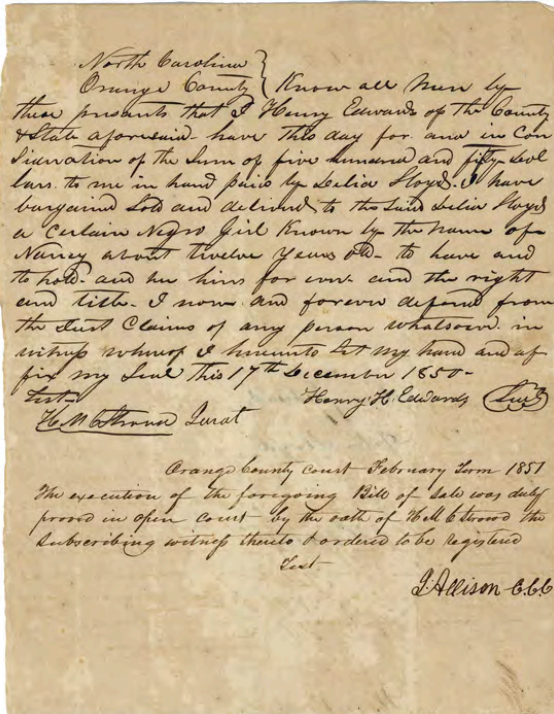 North Carolina }
Orange County } Know all Men by
these presents that I Henry Edwards of the County
& State aforesaid have this day for and in Con
Sideration of the Sum of five hundred and fifty Dol
lars to me in hand paid by Delia Floyd. I have
bargained Sold and delivered to the Said Delia Floyd
a Certain Negro Girl Known by the name of
Nancy about twelve Years old - to have and
to hold - and her hirs for ever - and the right
and title - I now and forever defend from
the Just Claims of any person whatsoever in
witness whereof I hereunto Set my hand and af
fix my Seal this 17th December 1850 -
Test - Henry H. Edwards Seal
H M C Stroud Jurat
Orange County court February Term 1851
The execution of the foregoing Bill of Sale was duly
proved in open court by the oath of H M C Stroud the
subscribing witness thereto & ordered to be registered
Test
J. Allison C.C.C